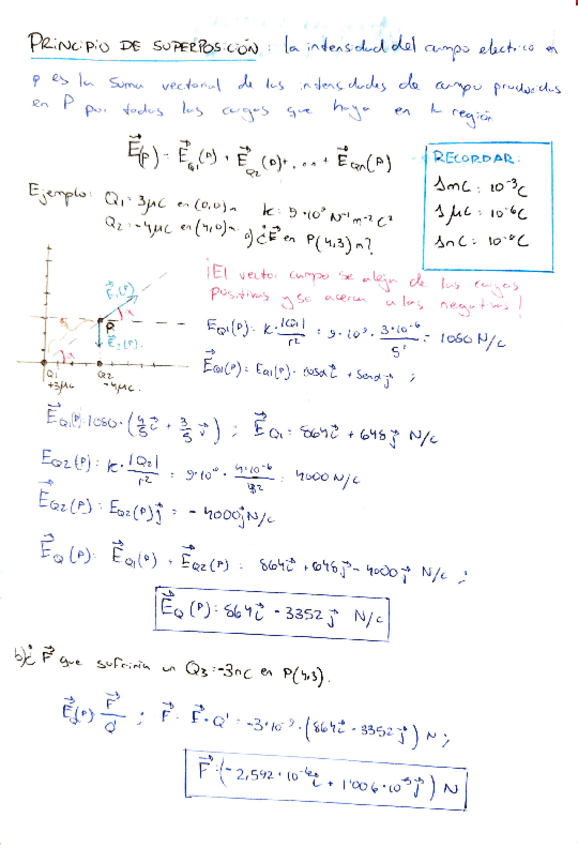 PRINCIPIO DE SUPERPOSICIÓN: la intensidad del campo electrico en
P es la suma vectorial de las intensidades de campo producidas
en P por todas las cargas que haya en la región
E⃗(P) = E⃗Q1(P) + E⃗Q2(P) + .... + E⃗Qn(P)
RECORDAR:
1mC = 10⁻³C
1μC = 10⁻⁶C
1nC =
Ejemplo: Q1 = 3μC en (0,0)m K = 9·10⁹ N⁻¹m⁻²C²
Q2 = -4μC en (4,0)m a) ¿E⃗ en P(4,3)m?
¡El vector campo se aleja de las cargas
positivas y se acerca a las negativas!
E⃗1(P)
α
5
P
E⃗2(P).
α
Q1
+3μC
Q2
-4μC.
EQ1(P) = K·|Q1|/r² = 9·10⁹·3·10⁻⁶/5² = 1080 N/C
E⃗Q1(P) = EQ1(P)· cosα i⃗ + senα j⃗ ;
E⃗Q1(P) = 1080·(4/5 i⃗ + 3/5 j⃗) ; E⃗Q1 = 864i⃗ + 648j⃗ N/C
EQ2(P) = K·|Q2|/r² = 9·10⁹·4·10⁻⁶/3² = 4000 N/C
E⃗Q2(P) = EQ2(P) j⃗ = -4000j⃗ N/C
E⃗Q(P) = E⃗Q1(P) + E⃗Q2(P) = 864i⃗ + 648j⃗ - 4000j⃗ N/C ;
E⃗Q(P) = 864i⃗ - 3352j⃗ N/C
b) ¿F⃗ que sufriría un Q3 = -3nC en P(4,3).
E⃗Q(P) F⃗/Q' ; F⃗ = F⃗·Q' = -3·10⁻⁹·(864i⃗ - 3352j⃗) N ;
F⃗ = (-2,592·10⁻⁶i⃗ + 1'006·10⁻⁵j⃗) N